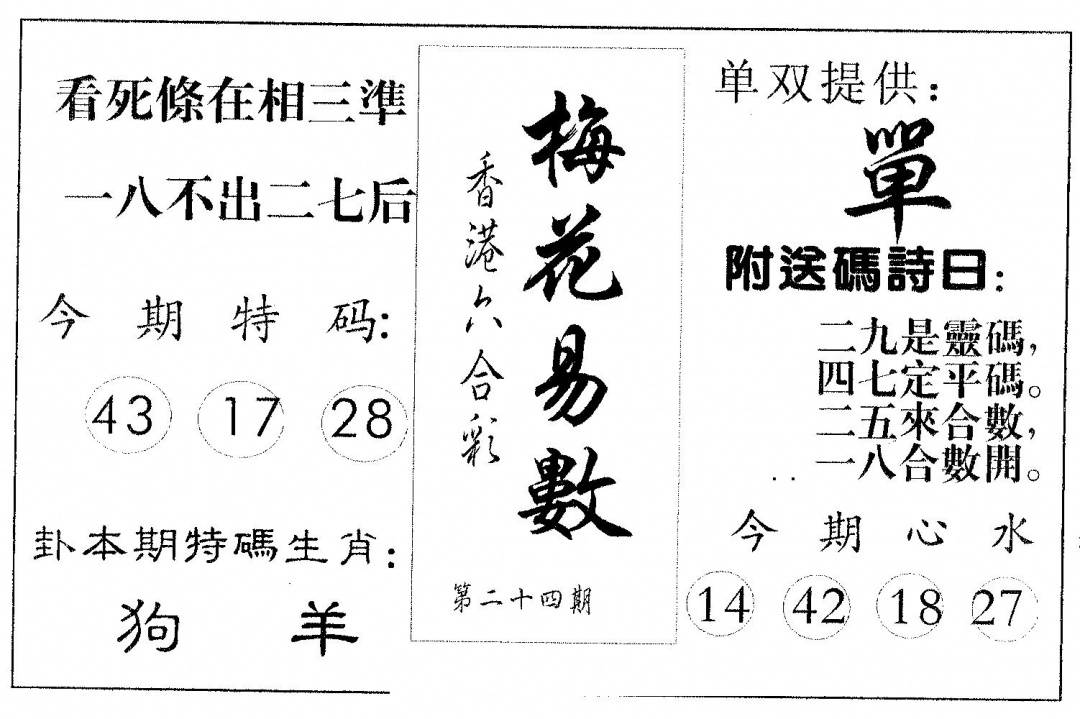 看死條在相三準
一八不出二七后
今期特码:
43 17 28
卦本期特碼生肖:
狗 羊
梅花易數
香港六合彩
第二十四期
单双提供:
單
附送碼詩曰:
二九是靈碼,
四七定平碼。
二五來合數,
一八合數開。
今期心水
14 42 18 27